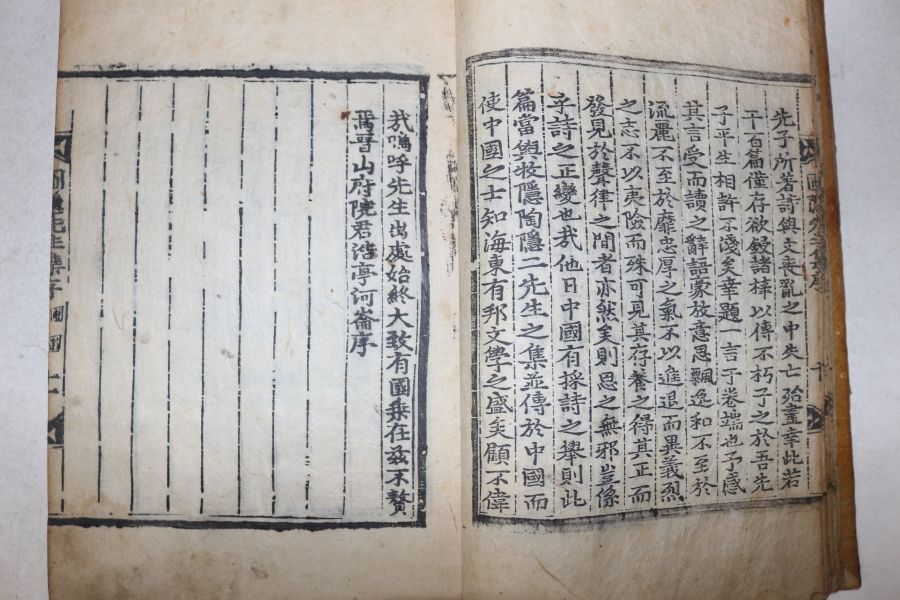 先子所著詩與文喪亂之中失亡殆盡幸此若
干百篇僅存欲鋟諸梓以傳不朽子之於吾先
子平生相許不淺矣幸題一言于卷端也予感
其言受而讀之辭語豪放意思飄逸和不至於
流麗不至於靡忠厚之氣不以進退而異義烈
之志不以夷險而殊可見其存養之得其正而
發見於聲律之間者亦然矣則思之無邪豈係
乎詩之正變也哉他日中國有採詩之擧則此
篇當與牧隱陶隱二先生之集並傳於中國而
使中國之士知海東有邦文學之盛矣顧不偉
哉嗚呼先生出處始終大致有國乘在玆不贅
焉晋山府院君浩亭河崙序
圃隱先生集序